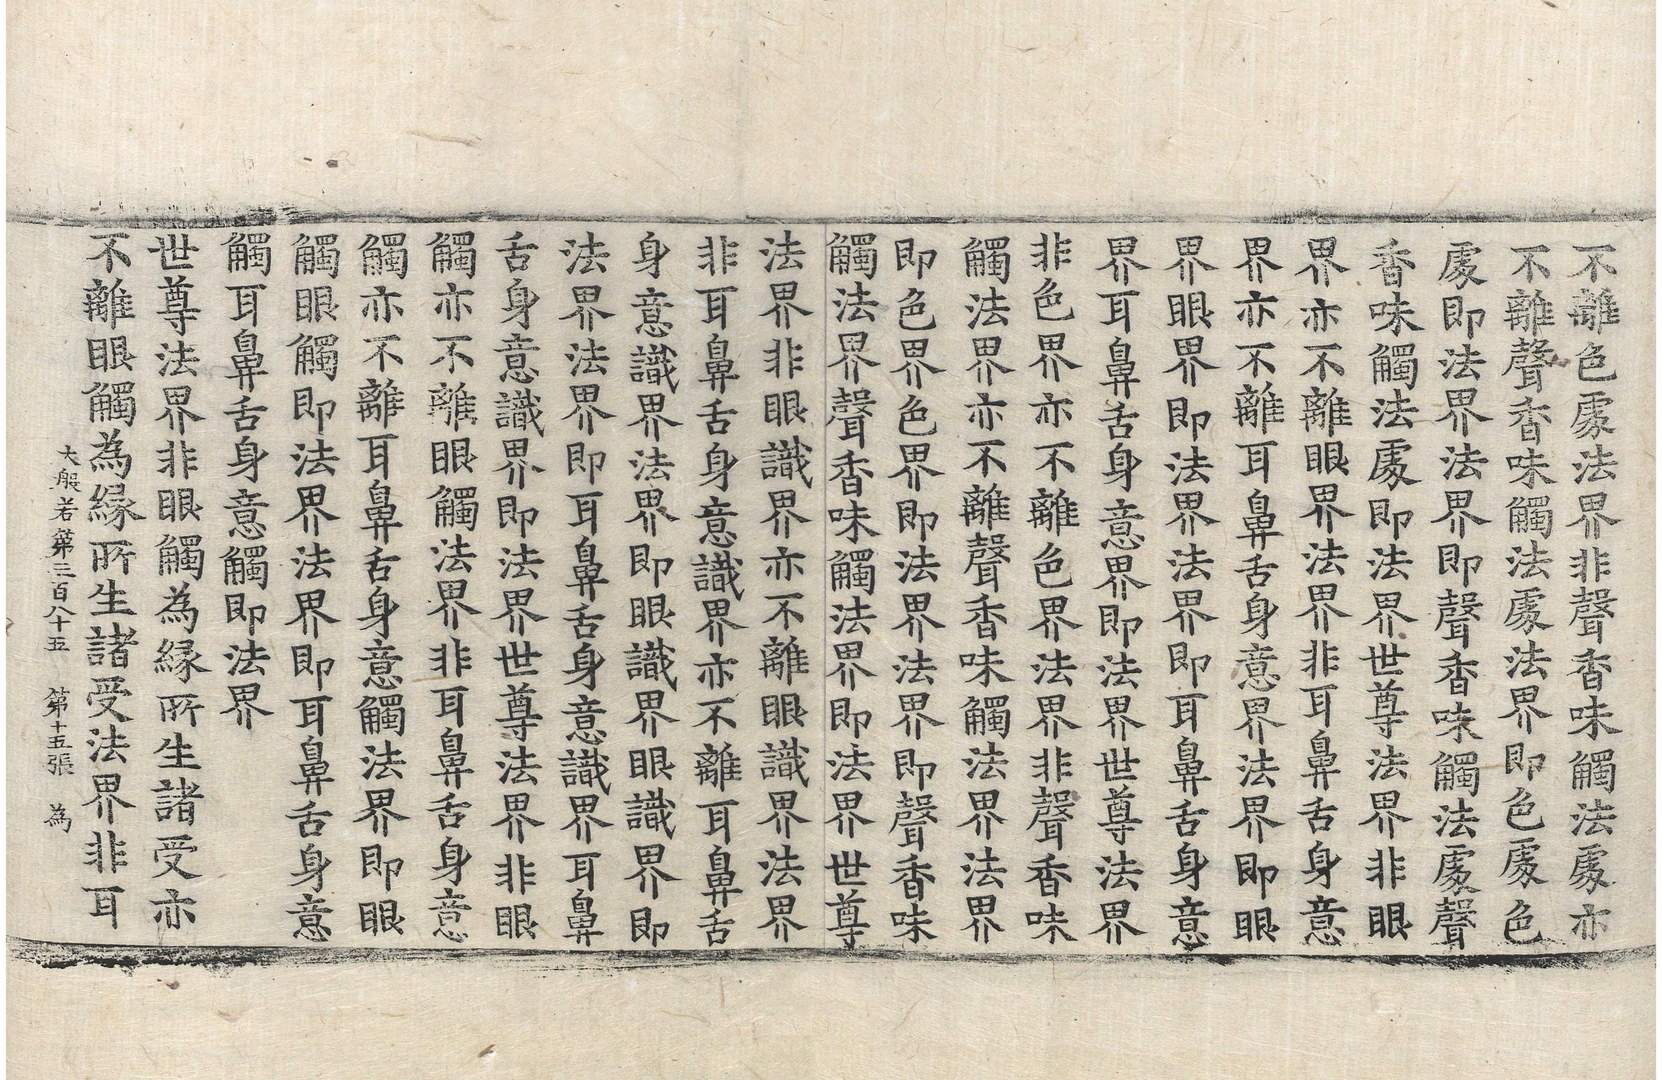 不離色處法界非聲香味觸法處亦
不離聲香味觸法處法界即色處色
處即法界法界即聲香味觸法處聲
香味觸法處即法界世尊法界非眼
界亦不離眼界法界非耳鼻舌身意
界亦不離耳鼻舌身意界法界即眼
界眼界即法界法界即耳鼻舌身意
界耳鼻舌身意界即法界世尊法界
非色界亦不離色界法界非聲香味
觸法界亦不離聲香味觸法界法界
即色界色界即法界法界即聲香味
觸法界聲香味觸法界即法界世尊
法界非眼識界亦不離眼識界法界
非耳鼻舌身意識界亦不離耳鼻舌
身意識界法界即眼識界眼識界即
法界法界即耳鼻舌身意識界耳鼻
舌身意識界即法界世尊法界非眼
觸亦不離眼觸法界非耳鼻舌身意
觸亦不離耳鼻舌身意觸法界即眼
觸眼觸即法界法界即耳鼻舌身意
觸耳鼻舌身意觸即法界
世尊法界非眼觸為緣所生諸受亦
不離眼觸為緣所生諸受法界非耳
大般若第三百八十五 第十五張 為